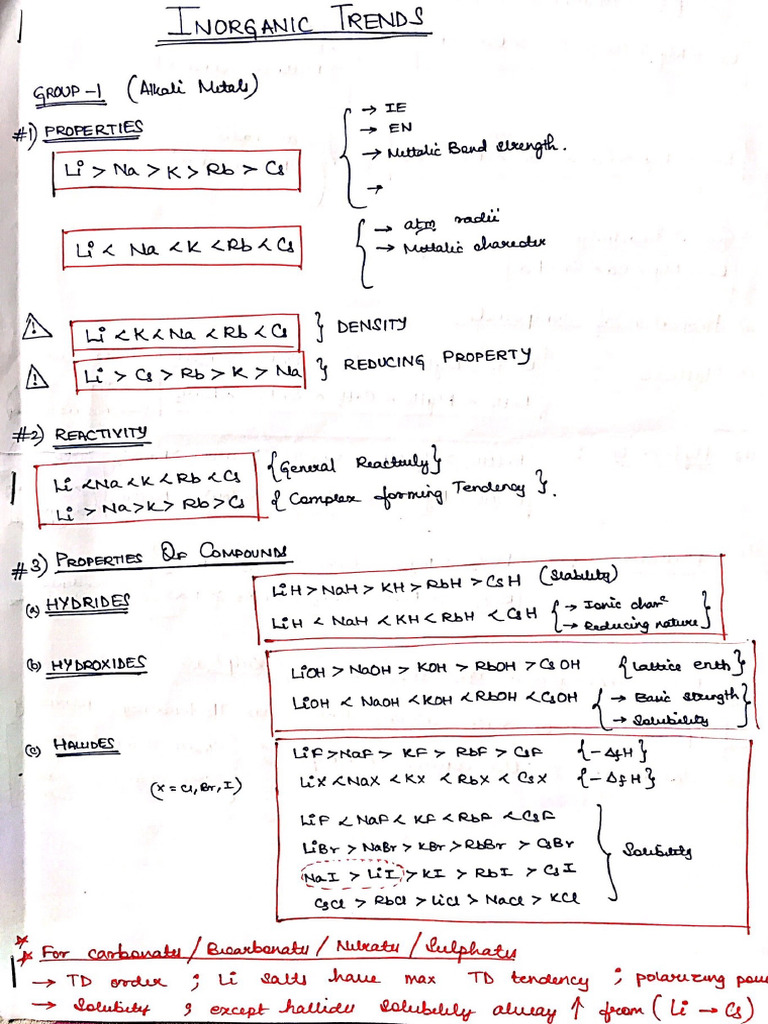 INORGANIC TRENDS
GROUP-1 (Alkali Metals)
#1) PROPERTIES
Li > Na > K > Rb > Cs
→ IE
→ EN
→ Mettalic Bond strength.
→
Li < Na < K < Rb < Cs
→ atm radii
→ Mettalic character
Li < K < Na < Rb < Cs } DENSITY
Li > Cs > Rb > K > Na } REDUCING PROPERTY
#2) REACTIVITY
Li < Na < K < Rb < Cs {General Reactivity}
Li > Na > K > Rb > Cs { Complex forming Tendency }.
#3) PROPERTIES OF COMPOUNDS
(a) HYDRIDES
LiH > NaH > KH > RbH > CsH (Stability)
LiH < NaH < KH < RbH < CsH { → Ionic charc
→ Reducing nature }
(b) HYDROXIDES
LiOH > NaOH > KOH > RbOH > CsOH {lattice enth}
LiOH < NaOH < KOH < RbOH < CsOH { → Basic strength
→ Solubility }
(c) HALIDES
LiF > NaF > KF > RbF > CsF {-ΔfH}
(X = Cl, Br, I) LiX < NaX < KX < RbX < CsX {-ΔfH}
LiF < NaF < KF < RbF < CsF
LiBr > NaBr > KBr > RbBr > CsBr
NaI > LiI > KI > RbI > CsI
CsCl > RbCl > LiCl > NaCl > KCl
} Solubility
For carbonates / Bicarbonates / Nitrates / Sulphates
→ TD order ; Li salts have max TD tendency ; polarizing pow
→ Solubility ; except hallides solubility always ↑ from (Li → Cs)